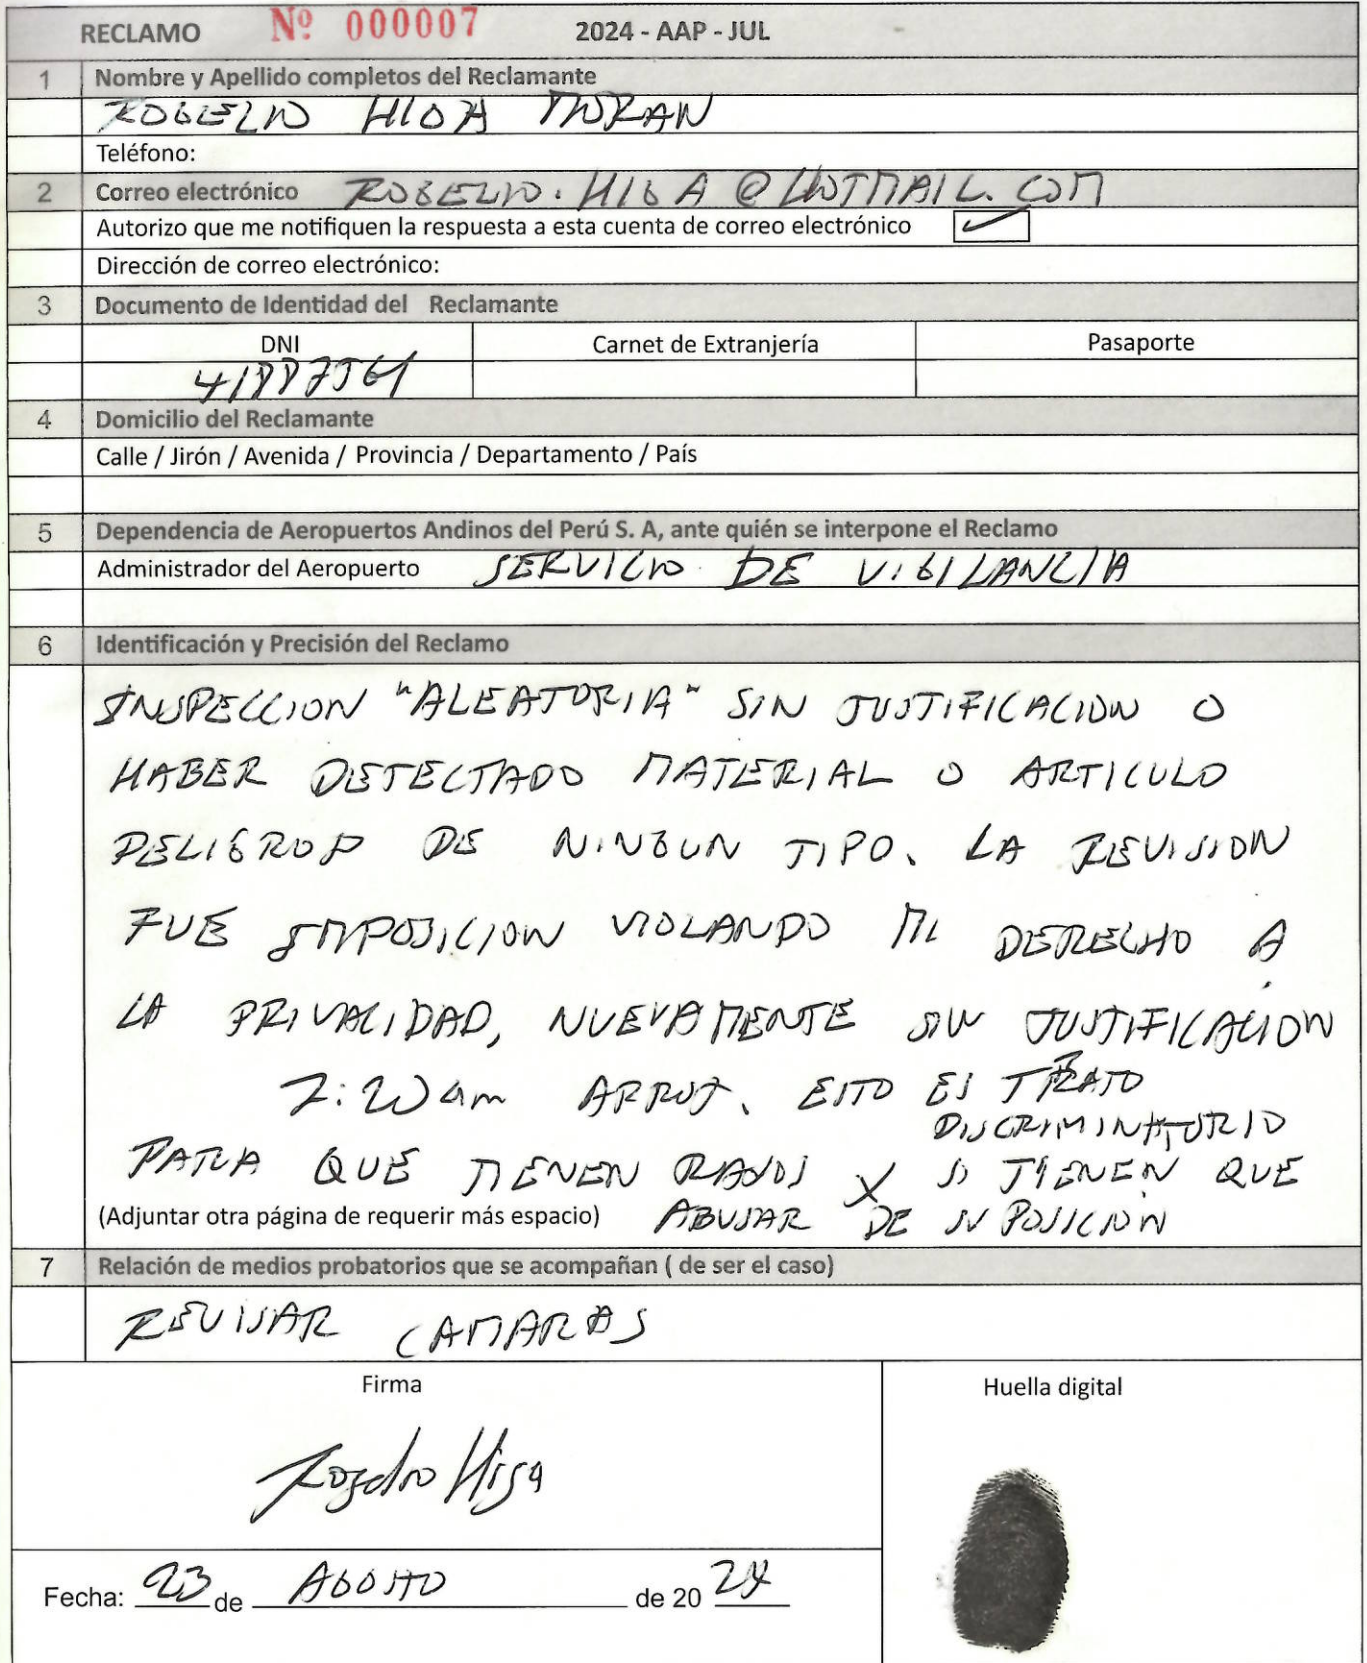 RECLAMO Nº 000007 2024 - AAP - JUL
1 Nombre y Apellido completos del Reclamante
ROGELIO HIGA MORAN
Teléfono:
2 Correo electrónico ROGELIO.HIGA@HOTMAIL.COM
Autorizo que me notifiquen la respuesta a esta cuenta de correo electrónico ✓
Dirección de correo electrónico:
3 Documento de Identidad del Reclamante
DNI Carnet de Extranjería Pasaporte
4 Domicilio del Reclamante
Calle / Jirón / Avenida / Provincia / Departamento / País
5 Dependencia de Aeropuertos Andinos del Perú S. A, ante quién se interpone el Reclamo
Administrador del Aeropuerto SERVICIO DE VIGILANCIA
6 Identificación y Precisión del Reclamo
INSPECCION "ALEATORIA" SIN JUSTIFICACION O
HABER DETECTADO MATERIAL O ARTICULO
PELIGROSO DE NINGUN TIPO. LA REVISION
FUE IMPOSICION VIOLANDO MI DERECHO A
LA PRIVACIDAD, NUEVAMENTE SIN JUSTIFICACION
7:20am APROX. ESTO ES TRATO
DISCRIMINATORIO
PARA QUE TIENEN RAYOS X SI TIENEN QUE
(Adjuntar otra página de requerir más espacio) ABUSAR DE SU POSICION
7 Relación de medios probatorios que se acompañan ( de ser el caso)
REVISAR CAMARAS
Firma Huella digital
Rogelio Higa
Fecha: 23 de AGOSTO de 20 24